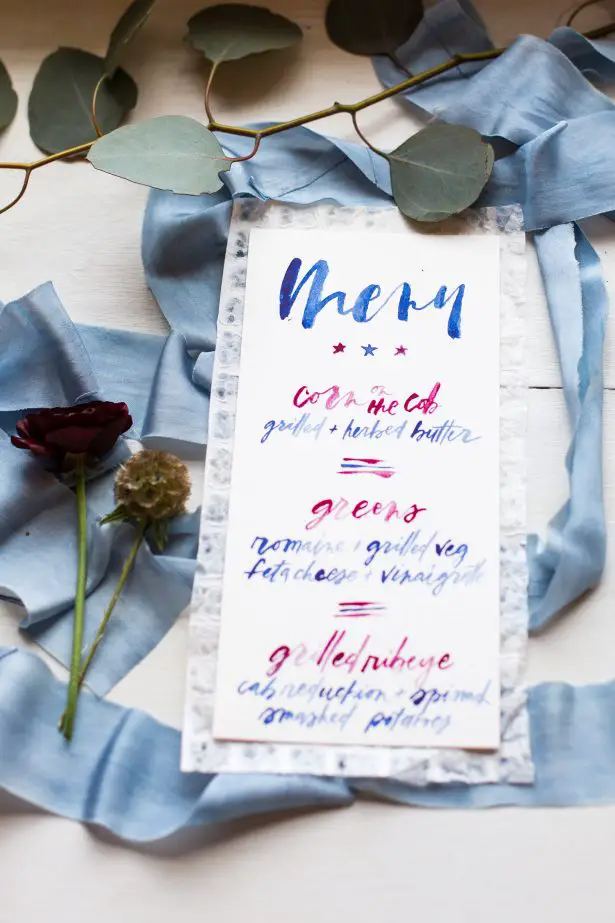 menu
corn on the cob
grilled + herbed butter
greens
romaine + grilled veg
feta cheese + vinaigrette
grilled ribeye
cab reduction + spinach
smashed potatoes